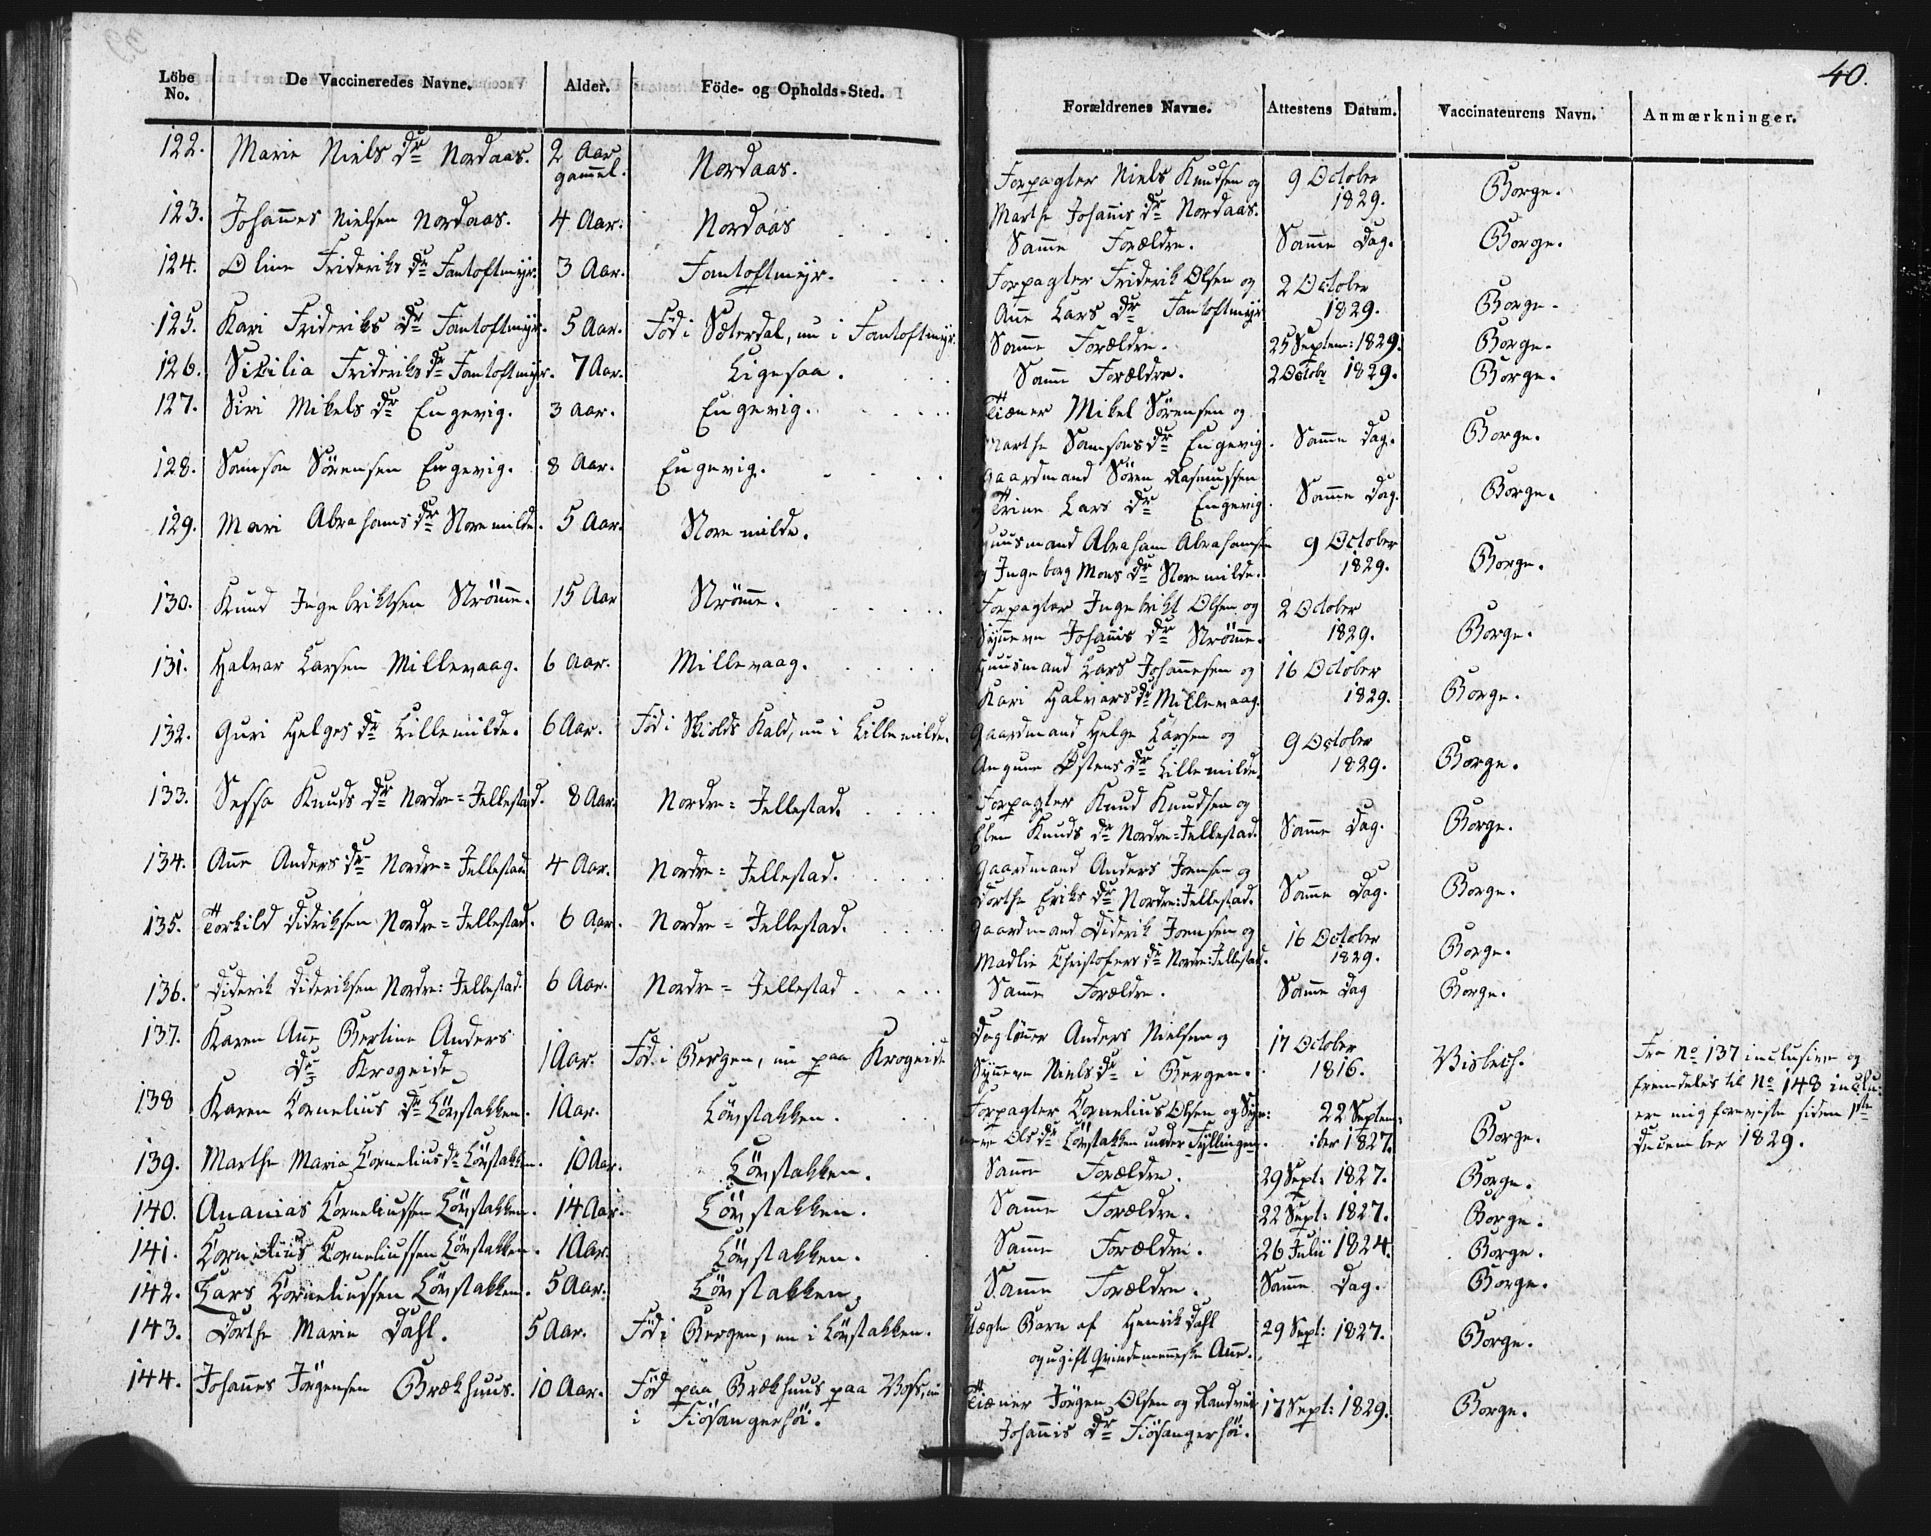 40.
Löbe No.
De Vaccineredes Navne.
Alder.
Föde- og Opholds-Sted.
Forældrenes Navne.
Attestens Datum.
Vaccinateurens Navn.
Anmærkninger.
122. Marie Niels Dr Nordaas. 2 Aar gammel. Nordaas.
Forpagter Niels Knudsen og 9 October
Marthe Johannis Dr Nordaas. 1829. Borge.
123. Johannes Nielsen Nordaas. 4 Aar. Nordaas
Samme Forældre. Samme Dag. Borge.
124. Oline Frideriks Dr Fantoftmyr. 3 Aar. Fantoftmyr.
Forpagter Friderik Olsen og 2 October
Anne Lars Dr Fantoftmyr 1829. Borge.
125. Kari Frideriks Dr Fantoftmyr. 5 Aar. Föd i Sæterdal, nu i Fantoftmyr.
Samme Forældre. 25 Septem: 1829. Borge.
126. Sikilia Frideriks Dr Fantoftmyr. 7 Aar. Ligesaa.
Samme Forældre. 2 Octobr 1829. Borge.
127. Siri Mikels Dr Engevig. 3 Aar. Engevig.
Tiæner Mikel Sörensen og
Marthe Samsons Dr Engevig. Samme Dag. Borge.
128. Samson Sörensen Engevig. 8 Aar. Engevig.
Gaardmand Sören Rasmussen
Trine Lars Dr Engevig. Samme Dag. Borge.
129. Mari Abrahams Dr Storemilde. 5 Aar. Storemilde.
Huusmand Abraham Abrahamsen 9 October
Ingeborg Mons Dr Storemilde. 1829. Borge.
130. Knud Ingebriktsen Strömme. 15 Aar Strömme.
Forpagter Ingebrikt Olsen og 2 October
Synneve Johannis Dr Strömme. 1829. Borge.
131. Halvar Larsen Millevaag. 6 Aar. Millevaag.
Huusmand Lars Johannesen og 16 October
Kari Halvars Dr Millevaag. 1829. Borge.
132. Guri Helges Dr Lillemilde. 6 Aar. Föd i Skiolds Kald, nu i Lillemilde.
Gaardmand Helge Larsen og 9 October
Angune Östens Dr Lillemilde. 1829. Borge.
133. Sessa Knuds Dr Nordre=Jellestad. 8 Aar. Nordre=Jellestad.
Forpagter Knud Knudsen og
Elen Knuds Dr Nordre=Jellestad. Samme Dag. Borge.
134. Anne Anders Dr Nordre=Jellestad 4 Aar. Nordre=Jellestad.
Gaardmand Anders Jonsen og
Dorthe Eriks Dr Nordre:Jellestad. Samme Dag. Borge.
135. Torkild Didriksen Nordre=Jellestad. 6 Aar. Nordre=Jellestad.
Gaardmand Diderik Jonsen og 16 October
Madlie Christofers Dr Nordre:Jellestad. 1829. Borge.
136. Diderik Dideriksen Nordre:Jellestad. 6 Aar. Nordre=Jellestad
Samme Forældre. Samme Dag Borge.
137. Karen Anne Bertine Anders
Dr Krogeide 1 Aar. Föd i Bergen, nu paa Krogeide
Daglönner Anders Nielsen og 17 October
Synneve Niels Dr i Bergen. 1816. Visbech.
Fra No 137 inclusive og
fremdeles til No 148 inclu:
er mig foreviste siden 1ste
December 1829.
138 Karen Cornelius Dr Lövstakken. 1 Aar. Lövstakken.
Forpagter Cornelius Olsen og Syn: 22 Septem:
neve Ols Dr Lövstakken under Fyllingen. ber 1827. Borge.
139. Marthe Maria Cornelius Dr Lövstakken. 10 Aar. Lövstakken.
Samme Forældre. 29 Sept: 1827. Borge.
140. Ananias Corneliussen Lövstakken. 14 Aar. Lövstakken.
Samme Forældre. 22 Sept: 1827. Borge.
141. Cornelius Corneliussen Lövstakken. 1 Aar. Lövstakken.
Samme Forældre. 26 Julii 1824. Borge.
142. Lars Corneliussen Lövstakken. 5 Aar. Lövstakken.
Samme Forældre. Samme Dag. Borge.
143. Dorthe Marie Dahl. 5 Aar. Föd i Bergen, nu i Lövstakken.
Uægte Barn af Henrik Dahl 29 Sept: 1827. Borge.
og ugift Qvindemenneske Anne.
144. Johannes Jörgensen Brækhuus. 10 Aar. Föd paa Brækhuus paa Voss, nu
i Fiösangerhöi.
Tiæner Jörgen Olsen og Randvei 17 Sept: 1829. Borge.
Johannis Dr Fiösangerhöi.